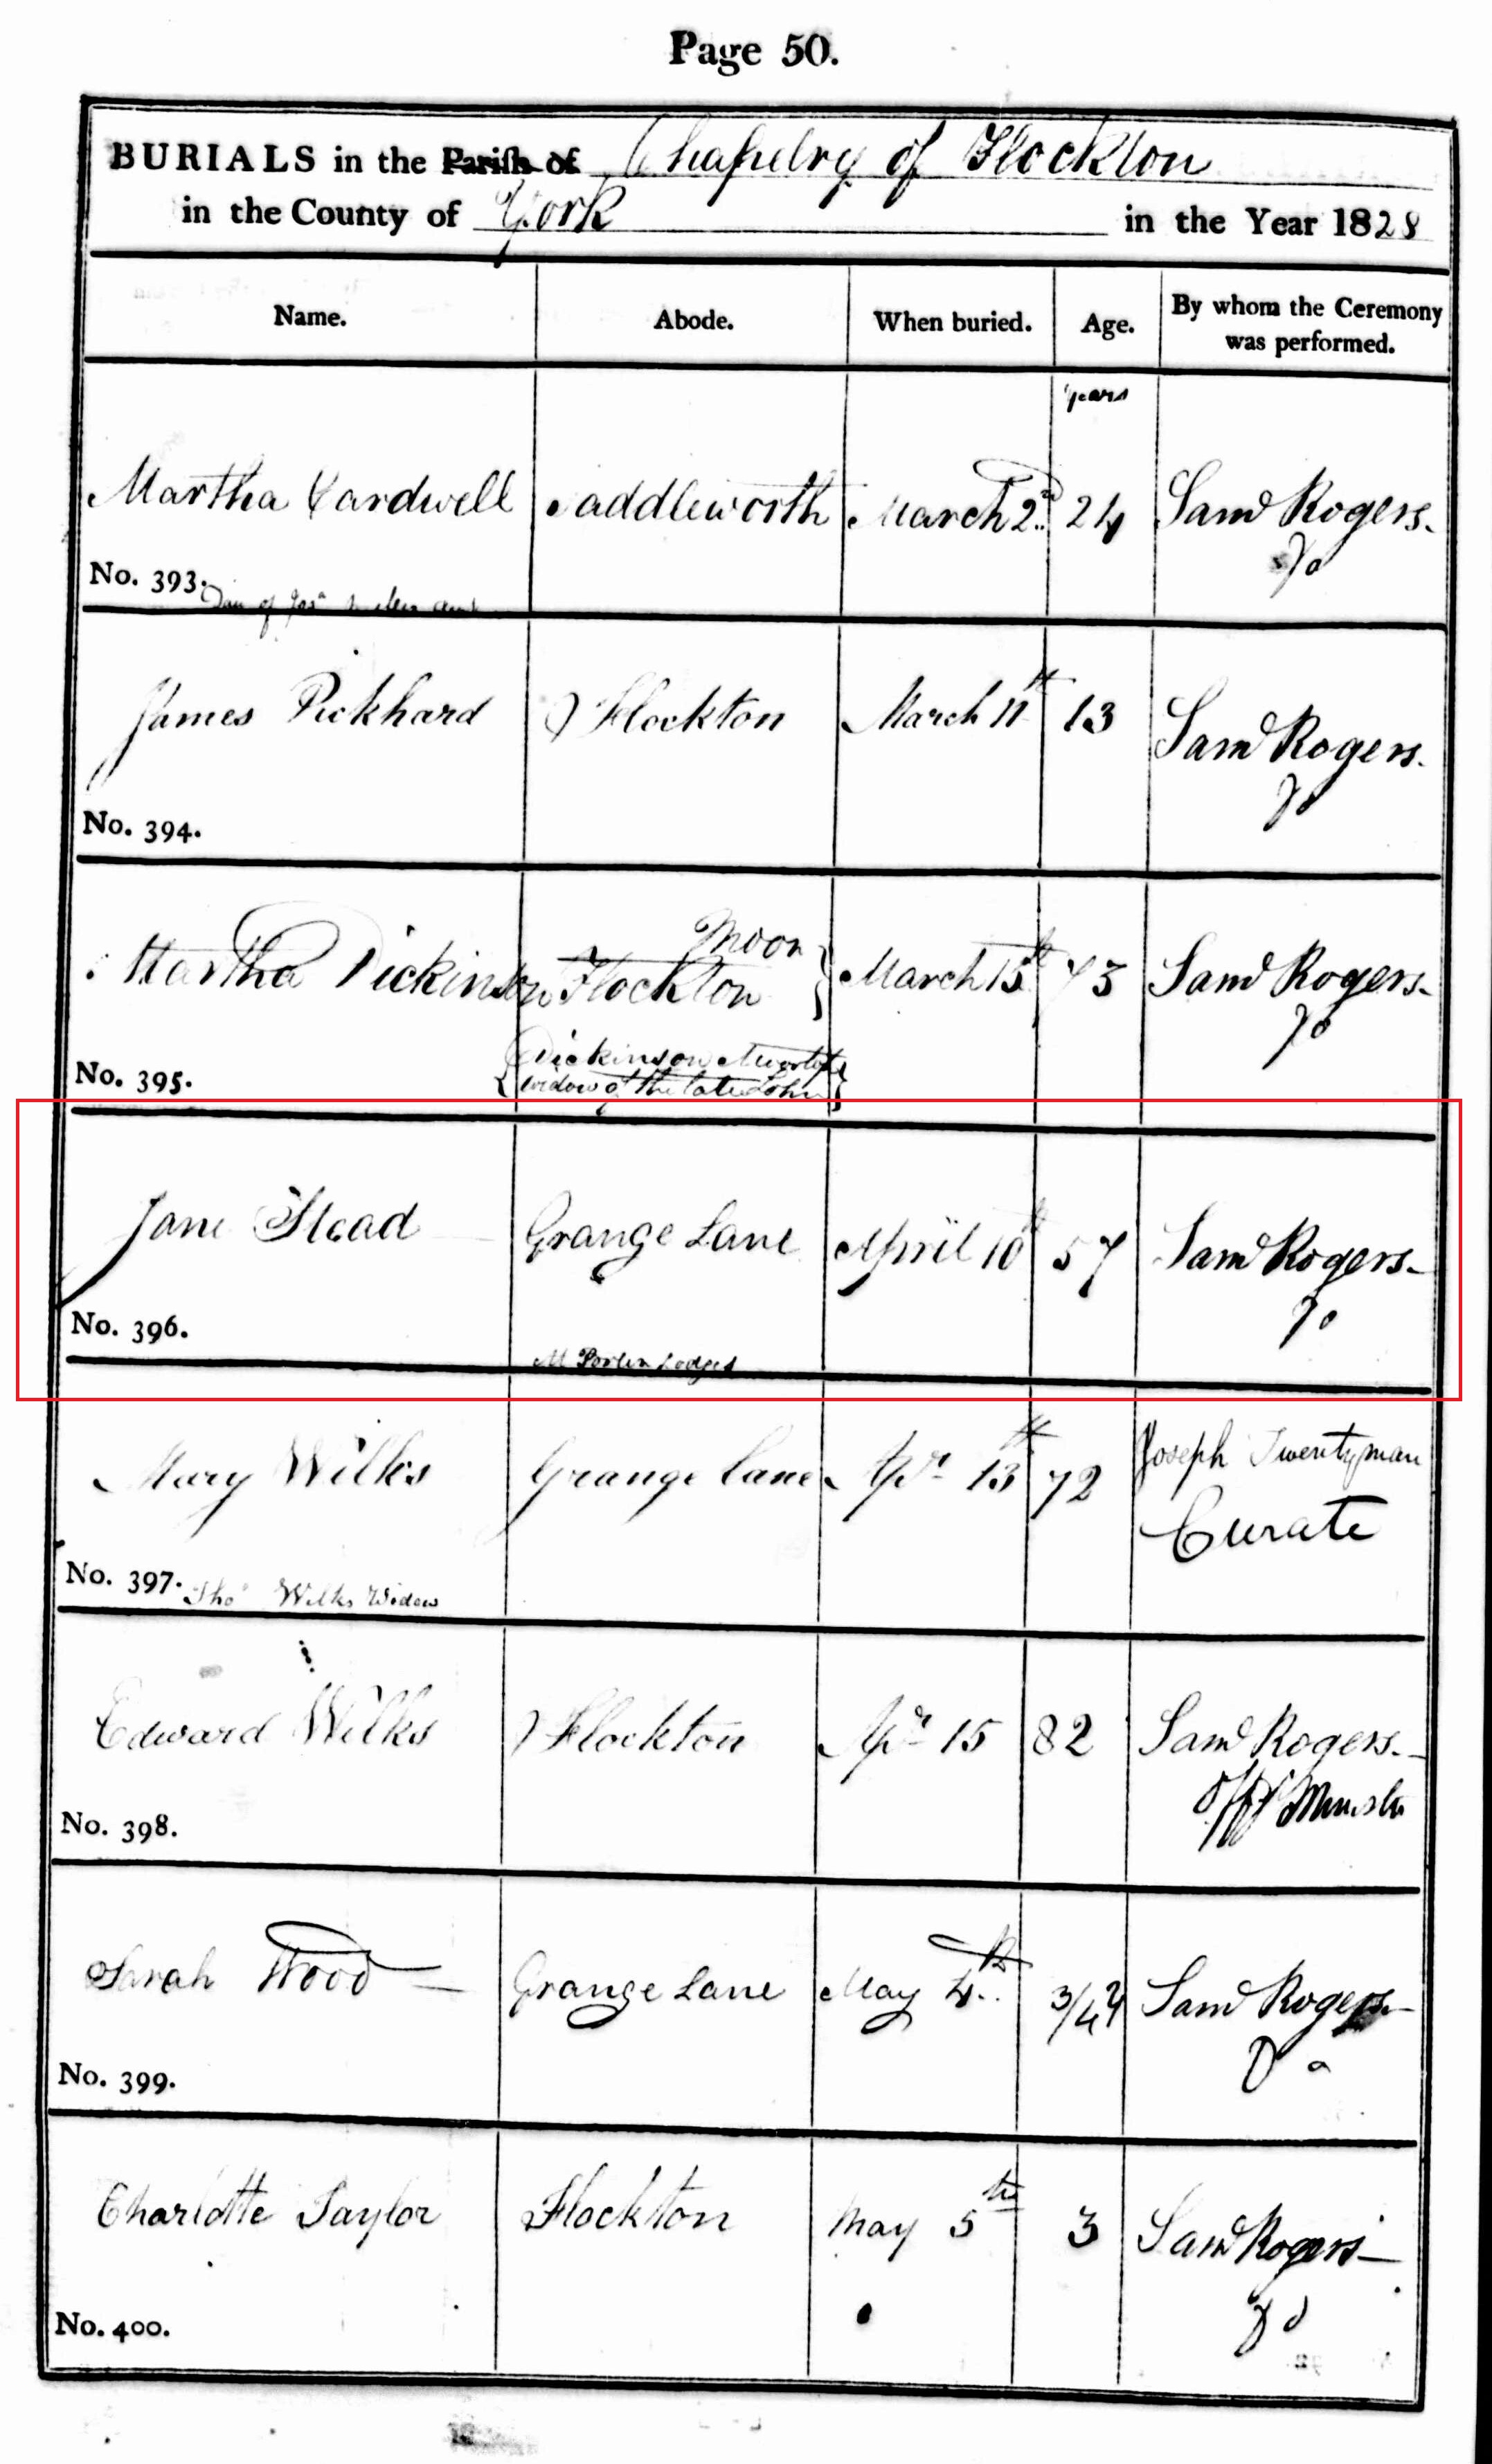 Page 50.
BURIALS in the Parish of Chapelry of Flockton
in the County of York in the Year 1828
Name. Abode. When buried. Age. By whom the Ceremony was performed.
years
Martha Cardwell Saddleworth March 2d 24 Saml Rogers.
Do
No. 393.
James Pickhard Flockton March 11th 13 Saml Rogers.
Do
No. 394.
Moon
Martha Dickinson Flockton March 15th 73 Saml Rogers.
Do
Dickinson
No. 395. widow of the late John
Jane Stead Grange Lane April 10th 57 Saml Rogers.
Do
No. 396.
Lodges
Mary Wilks Grange Lane Apr 13th 72 Joseph Twentyman
Curate
No. 397. Thos Wilks Widow
Edward Wilks Flockton Apr 15 82 Saml Rogers.
Offg Minister
No. 398.
Sarah Wood Grange Lane May 4th 3/4 Saml Rogers
Do
No. 399.
Charlotte Taylor Flockton May 5th 3 Saml Rogers
Do
No. 400.